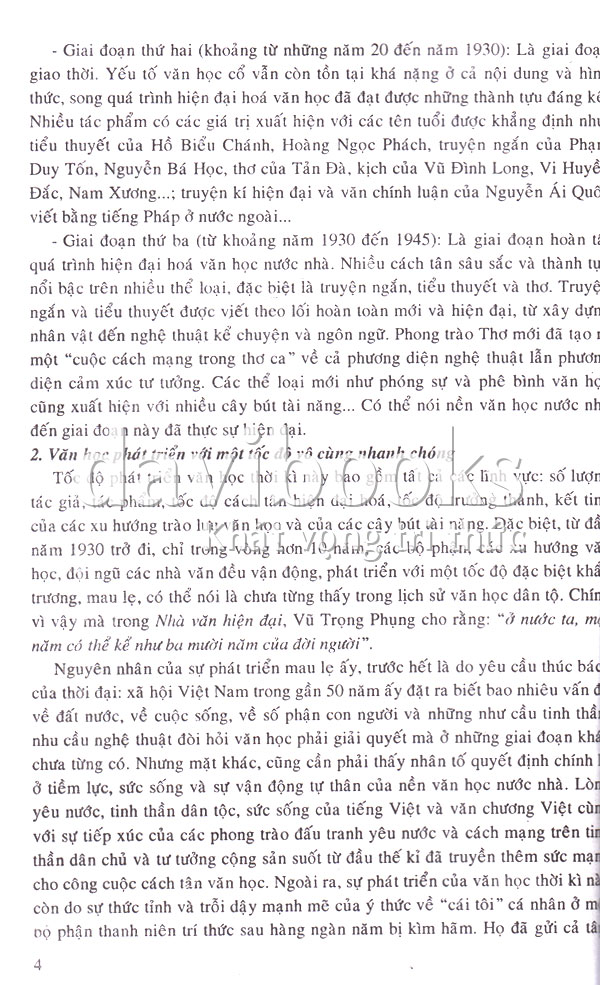 - Giai đoạn thứ hai (khoảng từ những năm 20 đến năm 1930): Là giai đoạ
giao thời. Yếu tố văn học cổ vẫn còn tồn tại khá nặng ở cả nội dung và hìn
thức, song quá trình hiện đại hoá văn học đã đạt được những thành tựu đáng kể
Nhiều tác phẩm có các giá trị xuất hiện với các tên tuổi được khẳng định như
tiểu thuyết của Hồ Biểu Chánh, Hoàng Ngọc Phách, truyện ngắn của Phạm
Duy Tốn, Nguyễn Bá Học, thơ của Tản Đà, kịch của Vũ Đình Long, Vi Huyề
Đắc, Nam Xương...; truyện kí hiện đại và văn chính luận của Nguyễn Ái Quố
viết bằng tiếng Pháp ở nước ngoài...
- Giai đoạn thứ ba (từ khoảng năm 1930 đến 1945): Là giai đoạn hoàn tấ
quá trình hiện đại hoá văn học nước nhà. Nhiều cách tân sâu sắc và thành tự
nổi bậc trên nhiều thể loại, đặc biệt là truyện ngắn, tiểu thuyết và thơ. Truyệ
ngắn và tiểu thuyết được viết theo lối hoàn toàn mới và hiện đại, từ xây dựn
nhân vật đến nghệ thuật kể chuyện và ngôn ngữ. Phong trào Thơ mới đã tạo r
một “cuộc cách mạng trong thơ ca” về cả phương diện nghệ thuật lẫn phươn
diện cảm xúc tư tưởng. Các thể loại mới như phóng sự và phê bình văn họ
cũng xuất hiện với nhiều cây bút tài năng... Có thể nói nền văn học nước nh
đến giai đoạn này đã thực sự hiện đại.
2. Văn học phát triển với một tốc độ vô cùng nhanh chóng
davibooks
Tốc độ phát triển văn học thời kì này bao gồm tất cả các lĩnh vực: số lượn
tác giả, tác phẩm, tốc độ cách tân hiện đại hoá, tốc độ trưởng thành, kết tin
của các xu hướng trào lưu văn học và của các cây bút tài năng. Đặc biệt, từ đầ
Khát vọng tri thức
năm 1930 trở đi, chỉ trong vòng hơn 10 năm, các bộ phận, các xu hướng vă
học, đội ngũ các nhà văn đều vận động, phát triển với một tốc độ đặc biệt khẩ
trương, mau lẹ, có thể nói là chưa từng thấy trong lịch sử văn học dân tộ. Chín
vì vậy mà trong Nhà văn hiện đại, Vũ Trọng Phụng cho rằng: “ở nước ta, mộ
năm có thể kể như ba mười năm của đời người”.
Nguyên nhân của sự phát triển mau lẹ ấy, trước hết là do yêu cầu thúc bác
của thời đại: xã hội Việt Nam trong gần 50 năm ấy đặt ra biết bao nhiêu vấn đ
về đất nước, về cuộc sống, về số phận con người và những như cầu tinh thần
nhu cầu nghệ thuật đòi hỏi văn học phải giải quyết mà ở những giai đoạn khá
chưa từng có. Nhưng mặt khác, cũng cần phải thấy nhân tố quyết định chính l
ở tiềm lực, sức sống và sự vận động tự thân của nền văn học nước nhà. Lòn
yêu nước, tinh thần dân tộc, sức sống của tiếng Việt và văn chương Việt cùn
với sự tiếp xúc của các phong trào đấu tranh yêu nước và cách mạng trên tin
thần dân chủ và tư tưởng cộng sản suốt từ đầu thế kỉ đã truyền thêm sức mạn
cho công cuộc cách tân văn học. Ngoài ra, sự phát triển của văn học thời kì nà
còn do sự thức tỉnh và trỗi dậy mạnh mẽ của ý thức về “cái tôi” cá nhân ở mộ
bộ phận thanh niên trí thức sau hàng ngàn năm bị kìm hãm. Họ đã gửi cả tâ
4